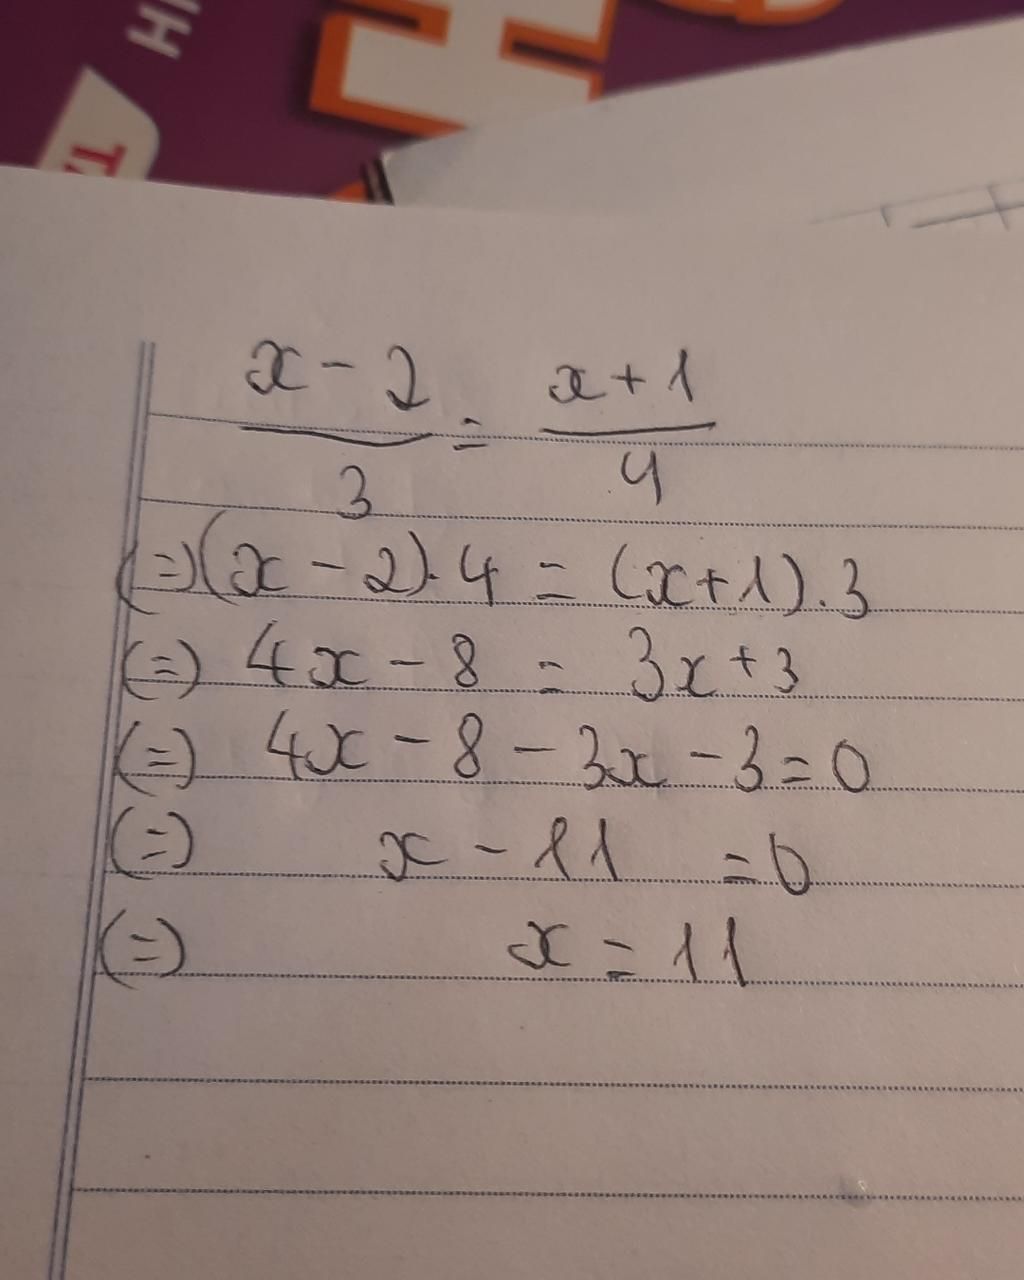 HI
H
TA
x - 2 / 3 = x + 1 / 4
(=) (x - 2) . 4 = (x + 1) . 3
(=) 4x - 8 = 3x + 3
(=) 4x - 8 - 3x - 3 = 0
(=) x - 11 = 0
(=) x = 11